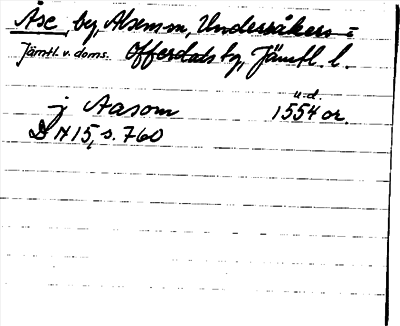 Åse by, Alsens sn, Undersåkers
Jämtl. v. doms. Offerdals tg, Jämtl. l.
j Aasom u.d. 1554 or.
DN 15, s. 760